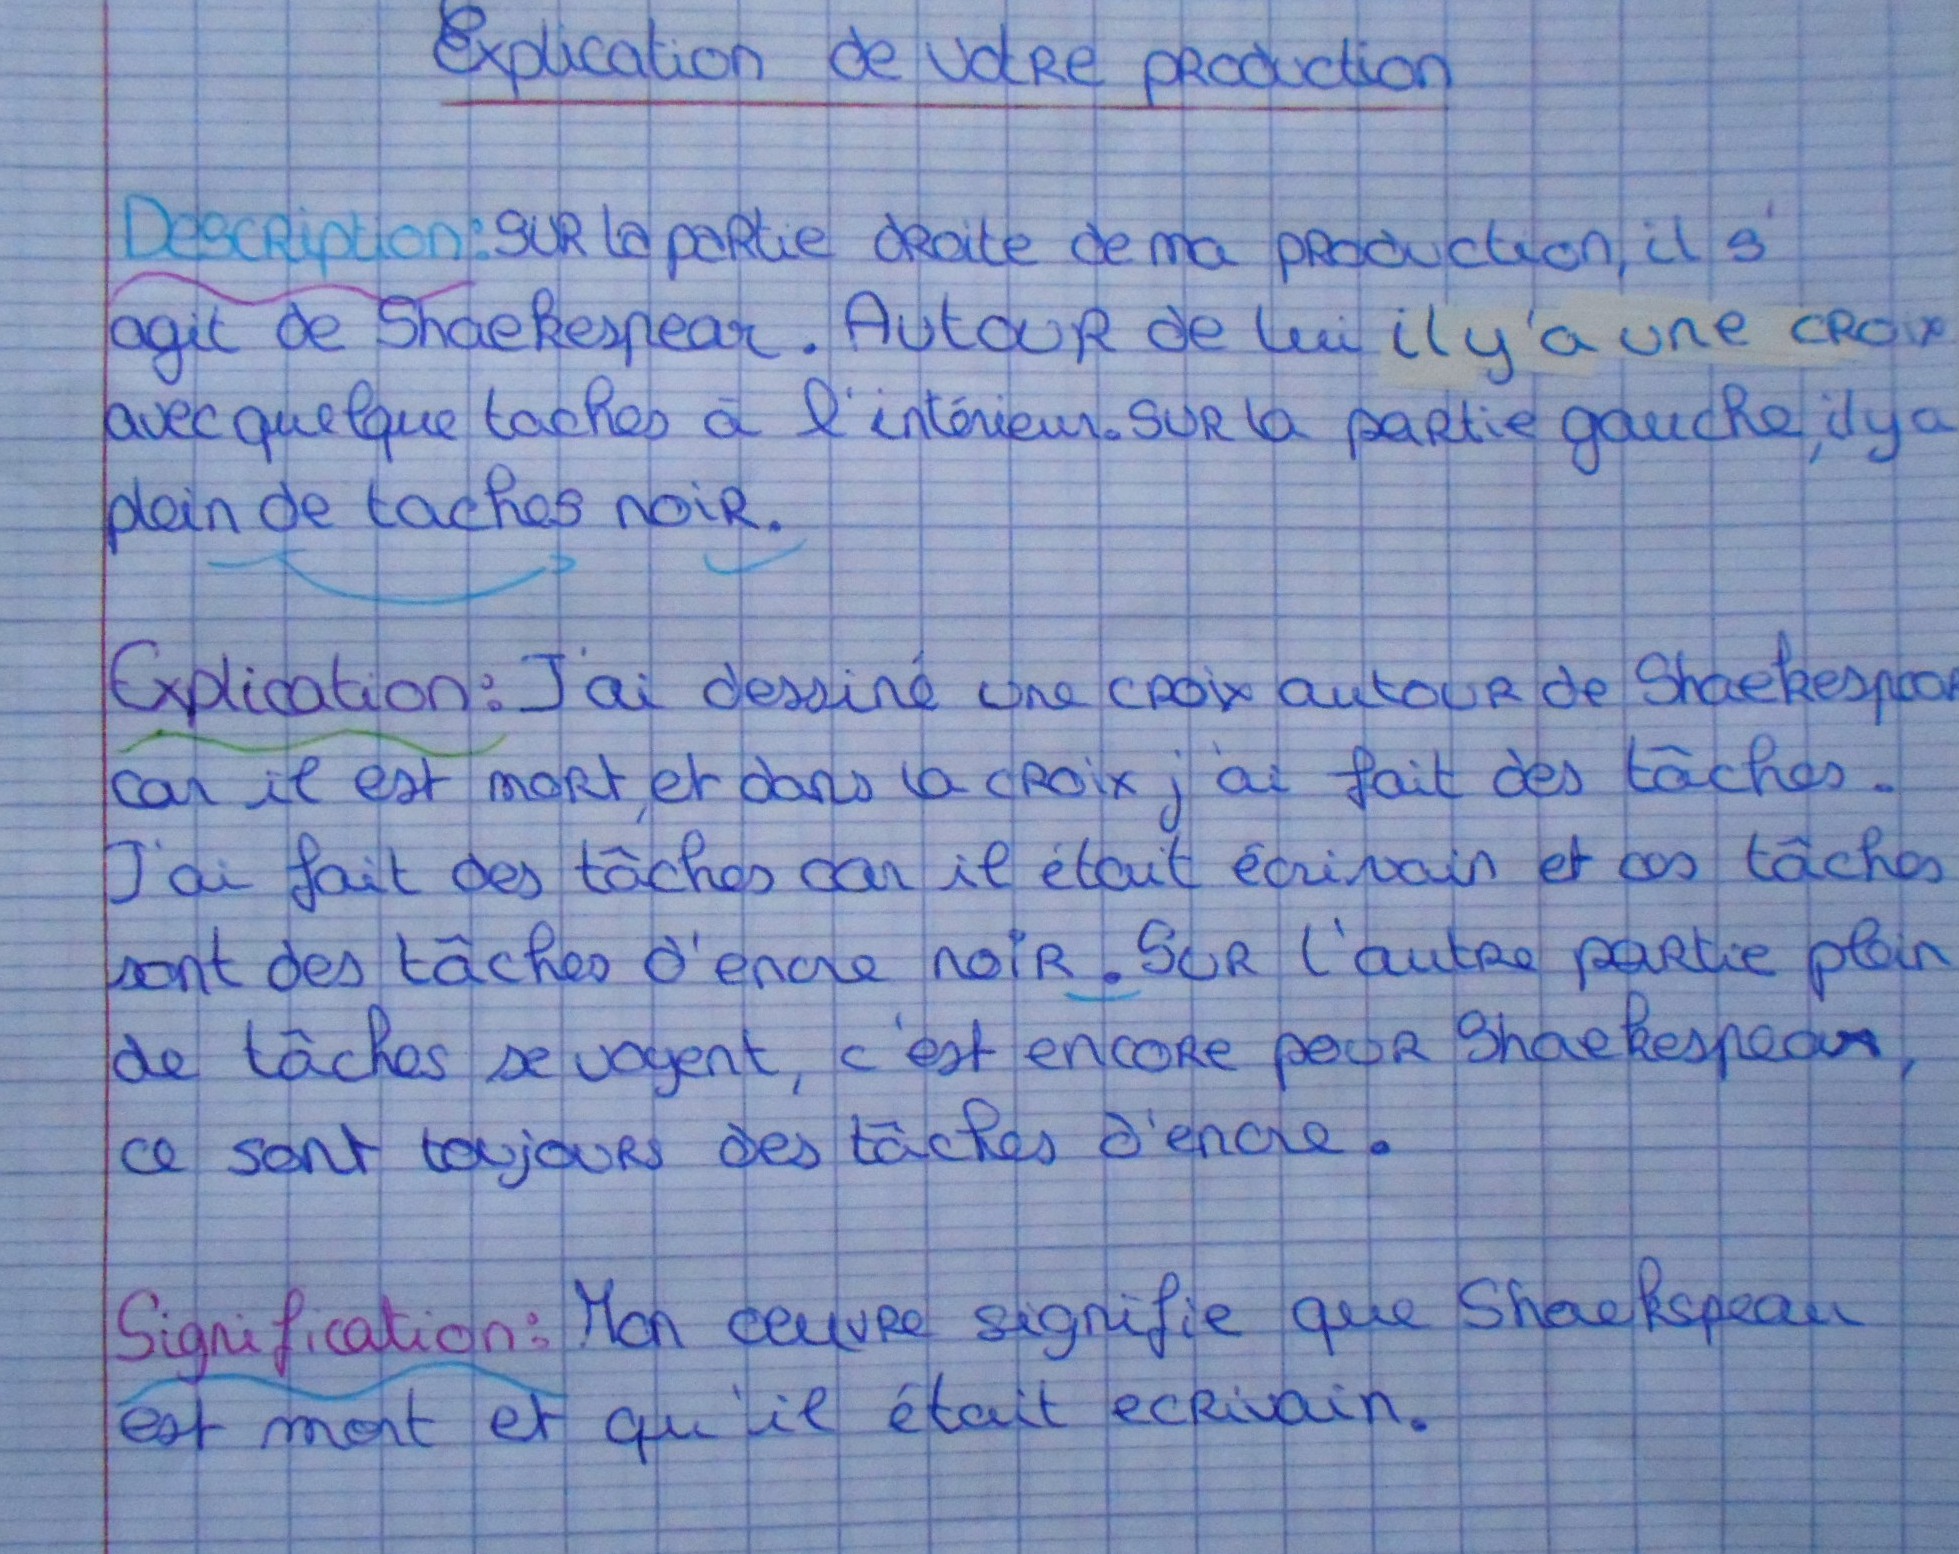 Explication de votre production
Description: sur la partie droite de ma production, il s'
agit de Shaekespear. Autour de lui il y'a une croix
avec quelque taches à l'intérieur. Sur la partie gauche, il y a
plein de taches noir.
Explication: J'ai dessiné une croix autour de Shaekespear
car il est mort, et dans la croix j'ai fait des tâches.
J'ai fait des tâches car il était écrivain et ces tâches
sont des tâches d'encre noir. Sur l'autre partie plein
de tâches se voyent, c'est encore pour Shaekespear,
ce sont toujours des tâches d'encre.
Signification: Mon oeuvre signifie que Shaekspear
est mort et qu'il était ecrivain.